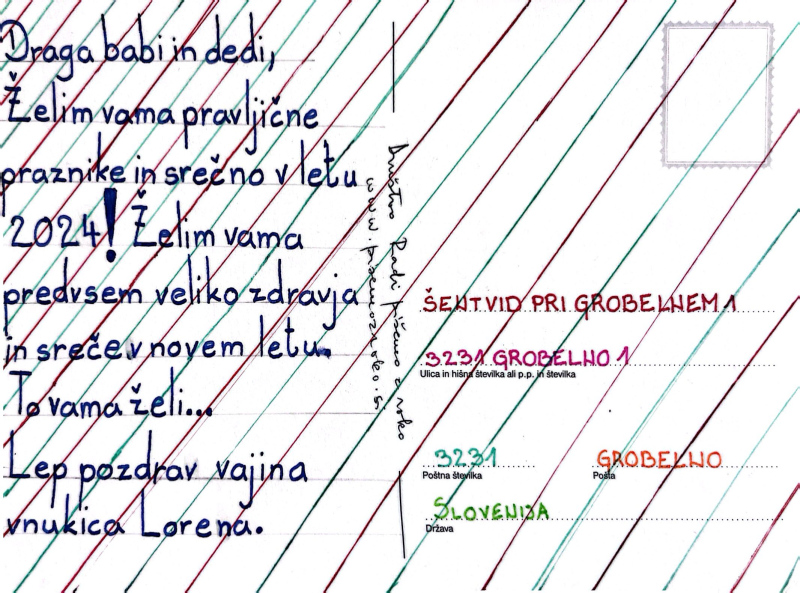 Draga babi in dedi,
Želim vama pravljične
praznike in srečno v letu
2024! Želim vama
predvsem veliko zdravja
in sreče v novem letu.
To vama želi...
Lep pozdrav vajina
vnukica Lorena.
Društvo Radi pišemo z roko
www.pisemozroko.si
ŠENTVID PRI GROBELNEM 1
3231 GROBELNO 1
Ulica in hišna številka ali p.p. in številka
3231 GROBELNO
Poštna številka Pošta
SLOVENIJA
Država